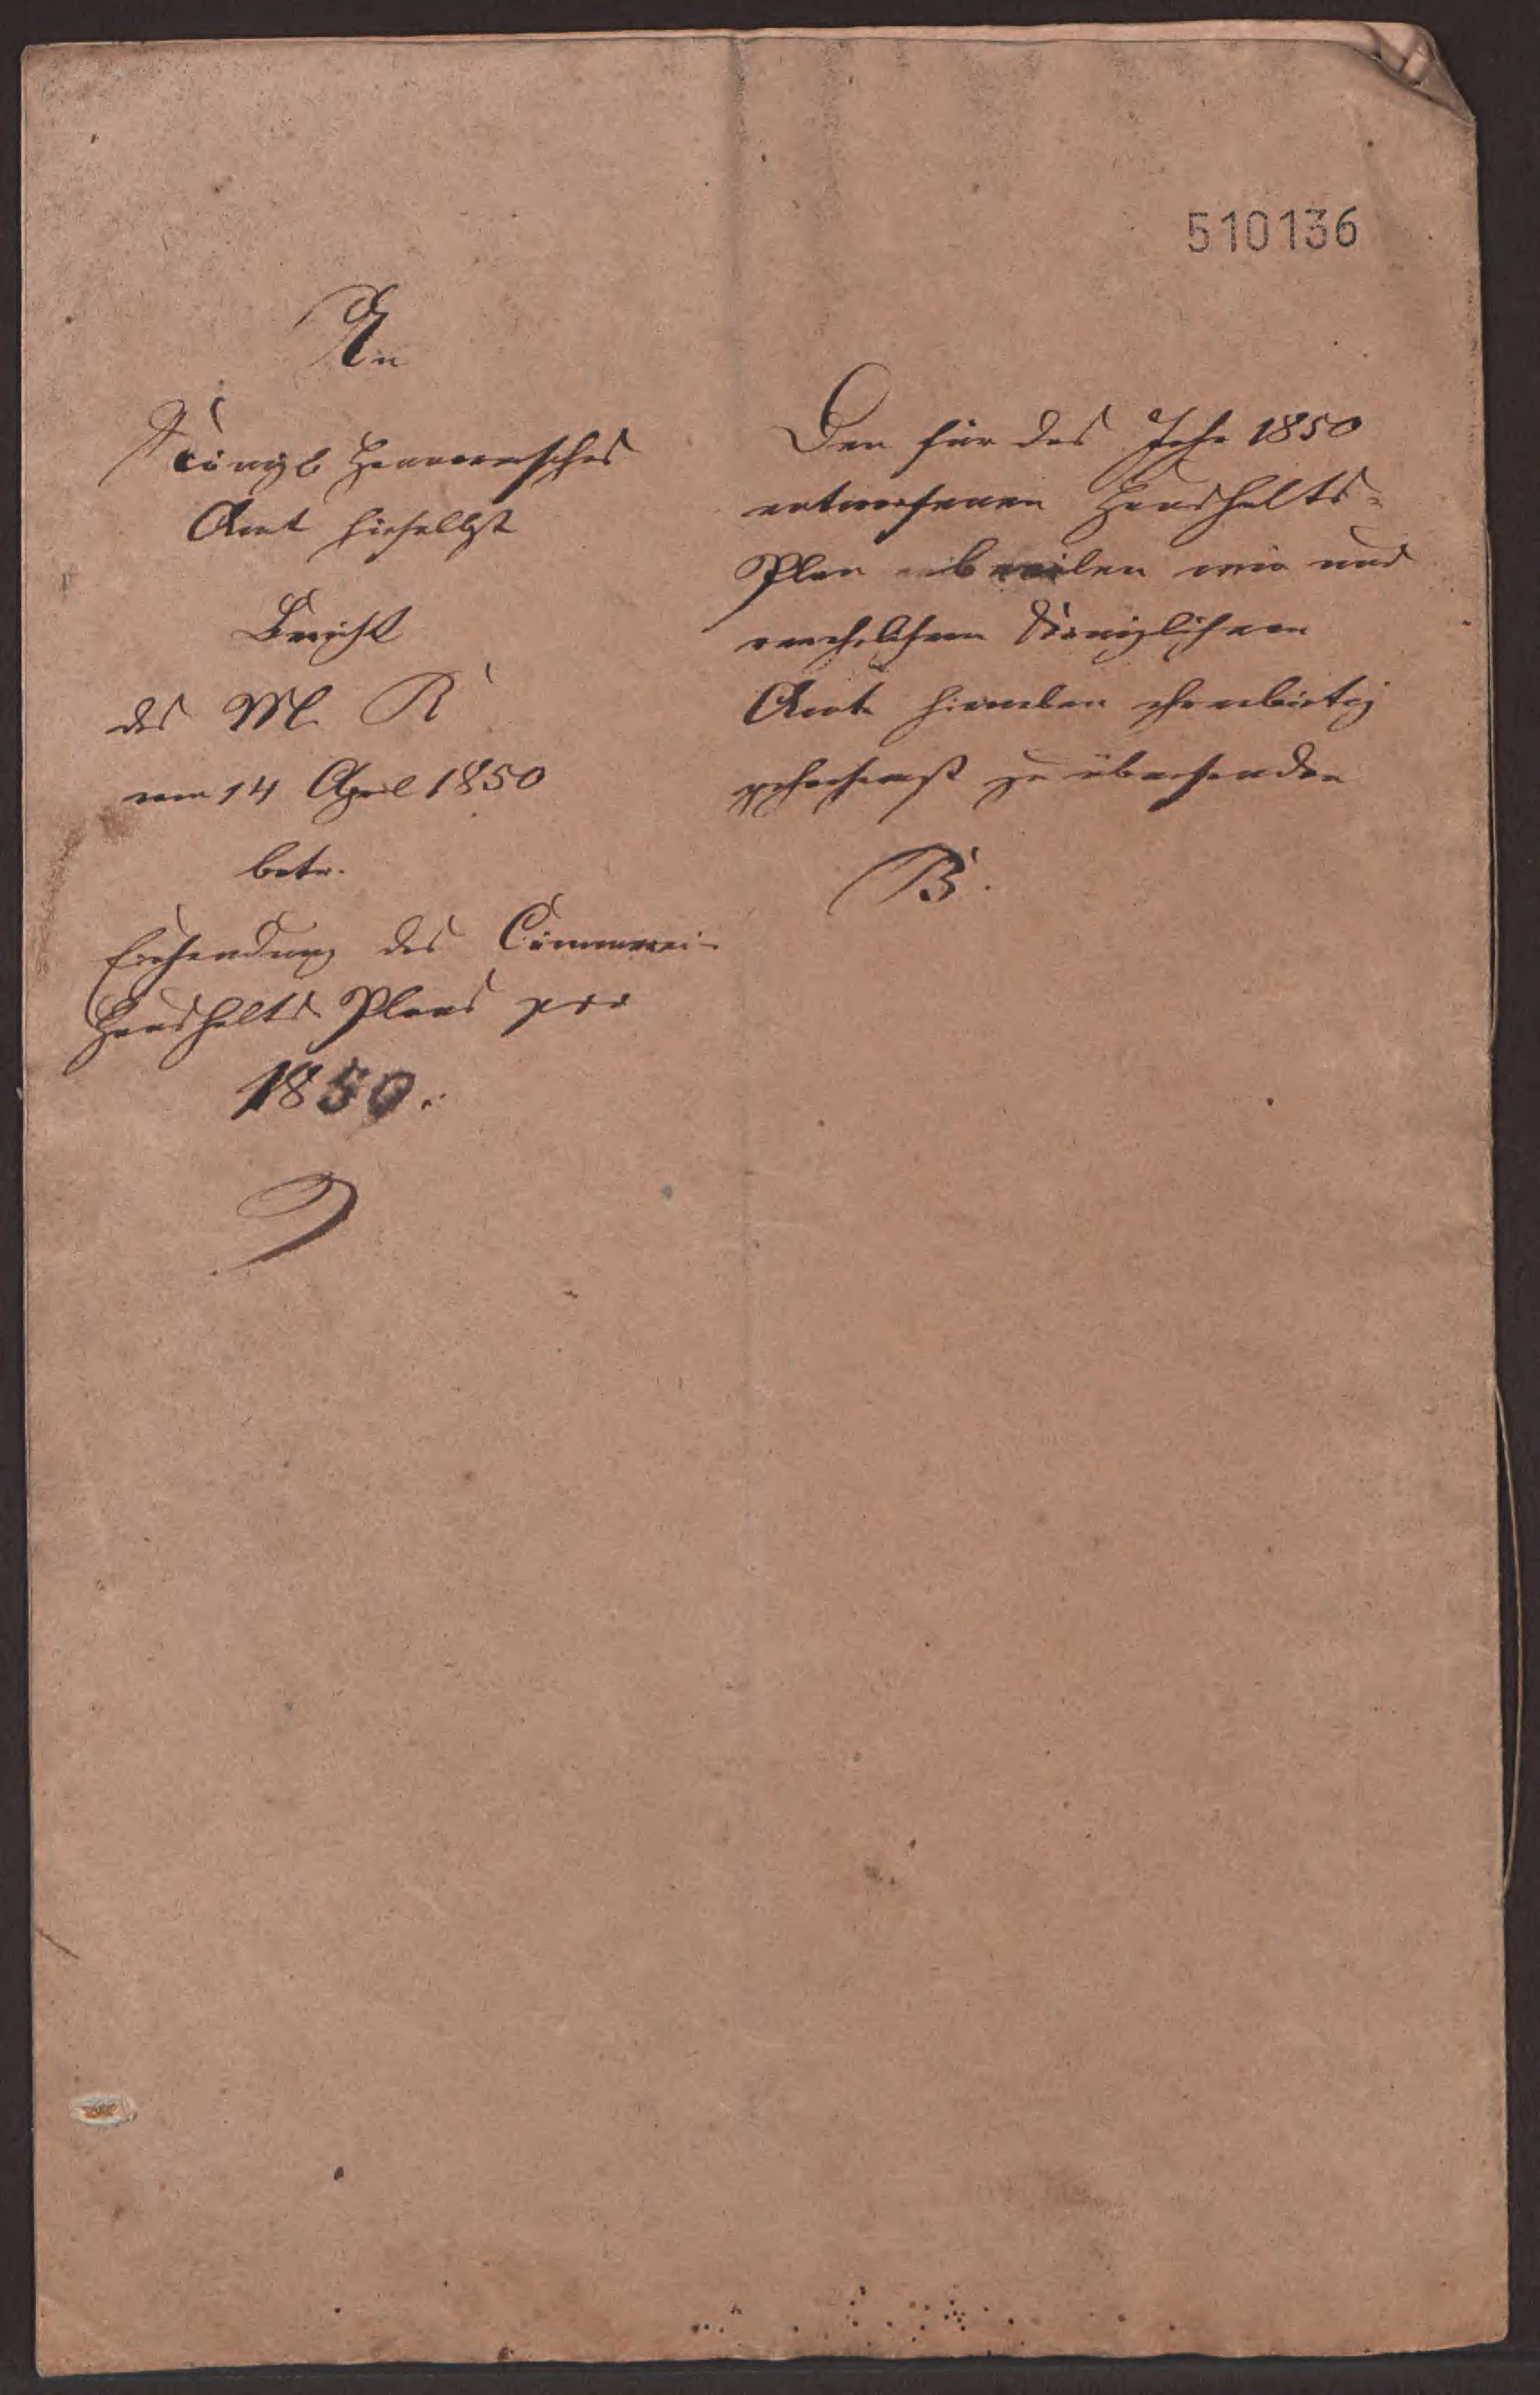 510136
An
Königl Hannoversches
Amt hieselbst
Bericht
des M. R
vom 14 April 1850
betr.
Einsendung des Cämmerei-
Haushalts Plans pro
1850.
Den für das Jahr 1850
entworfenen Haushalts-
Plan wir uns
Königlichem
Amte hieneben ehrerbietig
gehorsamst zu übersenden
B.